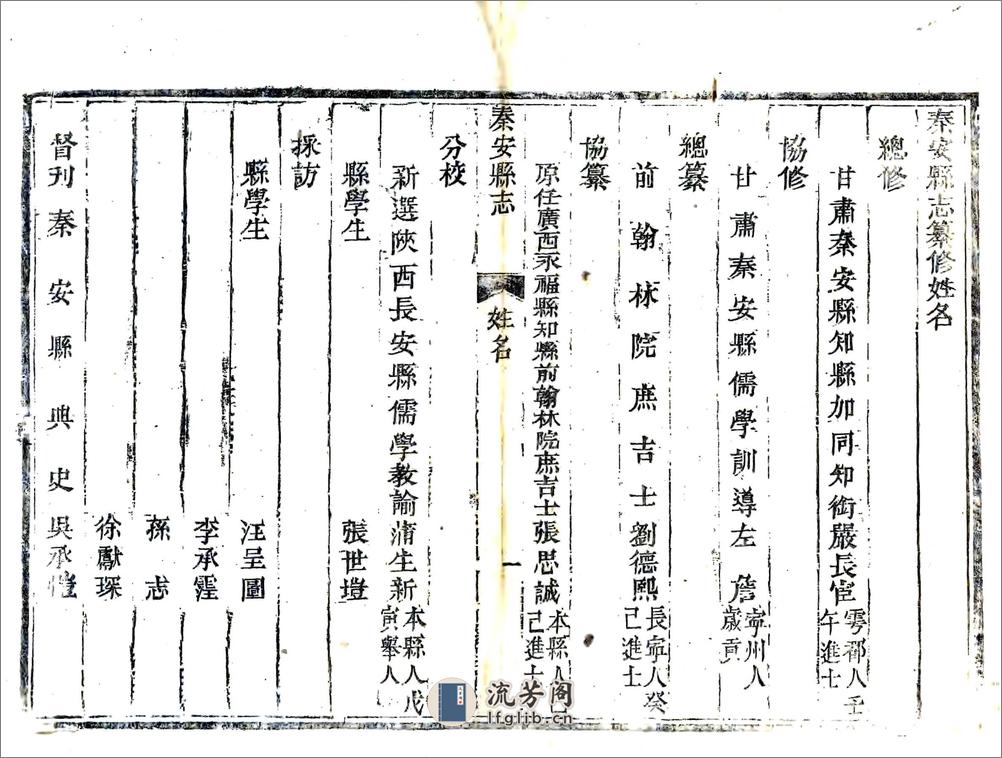 秦安縣志纂修姓名
總修
甘肅秦安縣知縣加同知銜嚴長宦雩都人壬午進士
協修
甘肅秦安縣儒學訓導左詹寧州人歲貢
總纂
前翰林院庶吉士劉德熙長寧人癸己進士
協纂
原任廣西永福縣知縣前翰林院庶吉士張思誠本縣人己進士
秦安縣志
姓名
一
分校
新選陝西長安縣儒學教諭蒲生新本縣人戊寅舉人
縣學生
張世塏
採訪
縣學生
汪呈圖
李承霔
孫志
徐獻琛
督刊秦安縣典史吳承愷
流芳阁
lfglib.cn